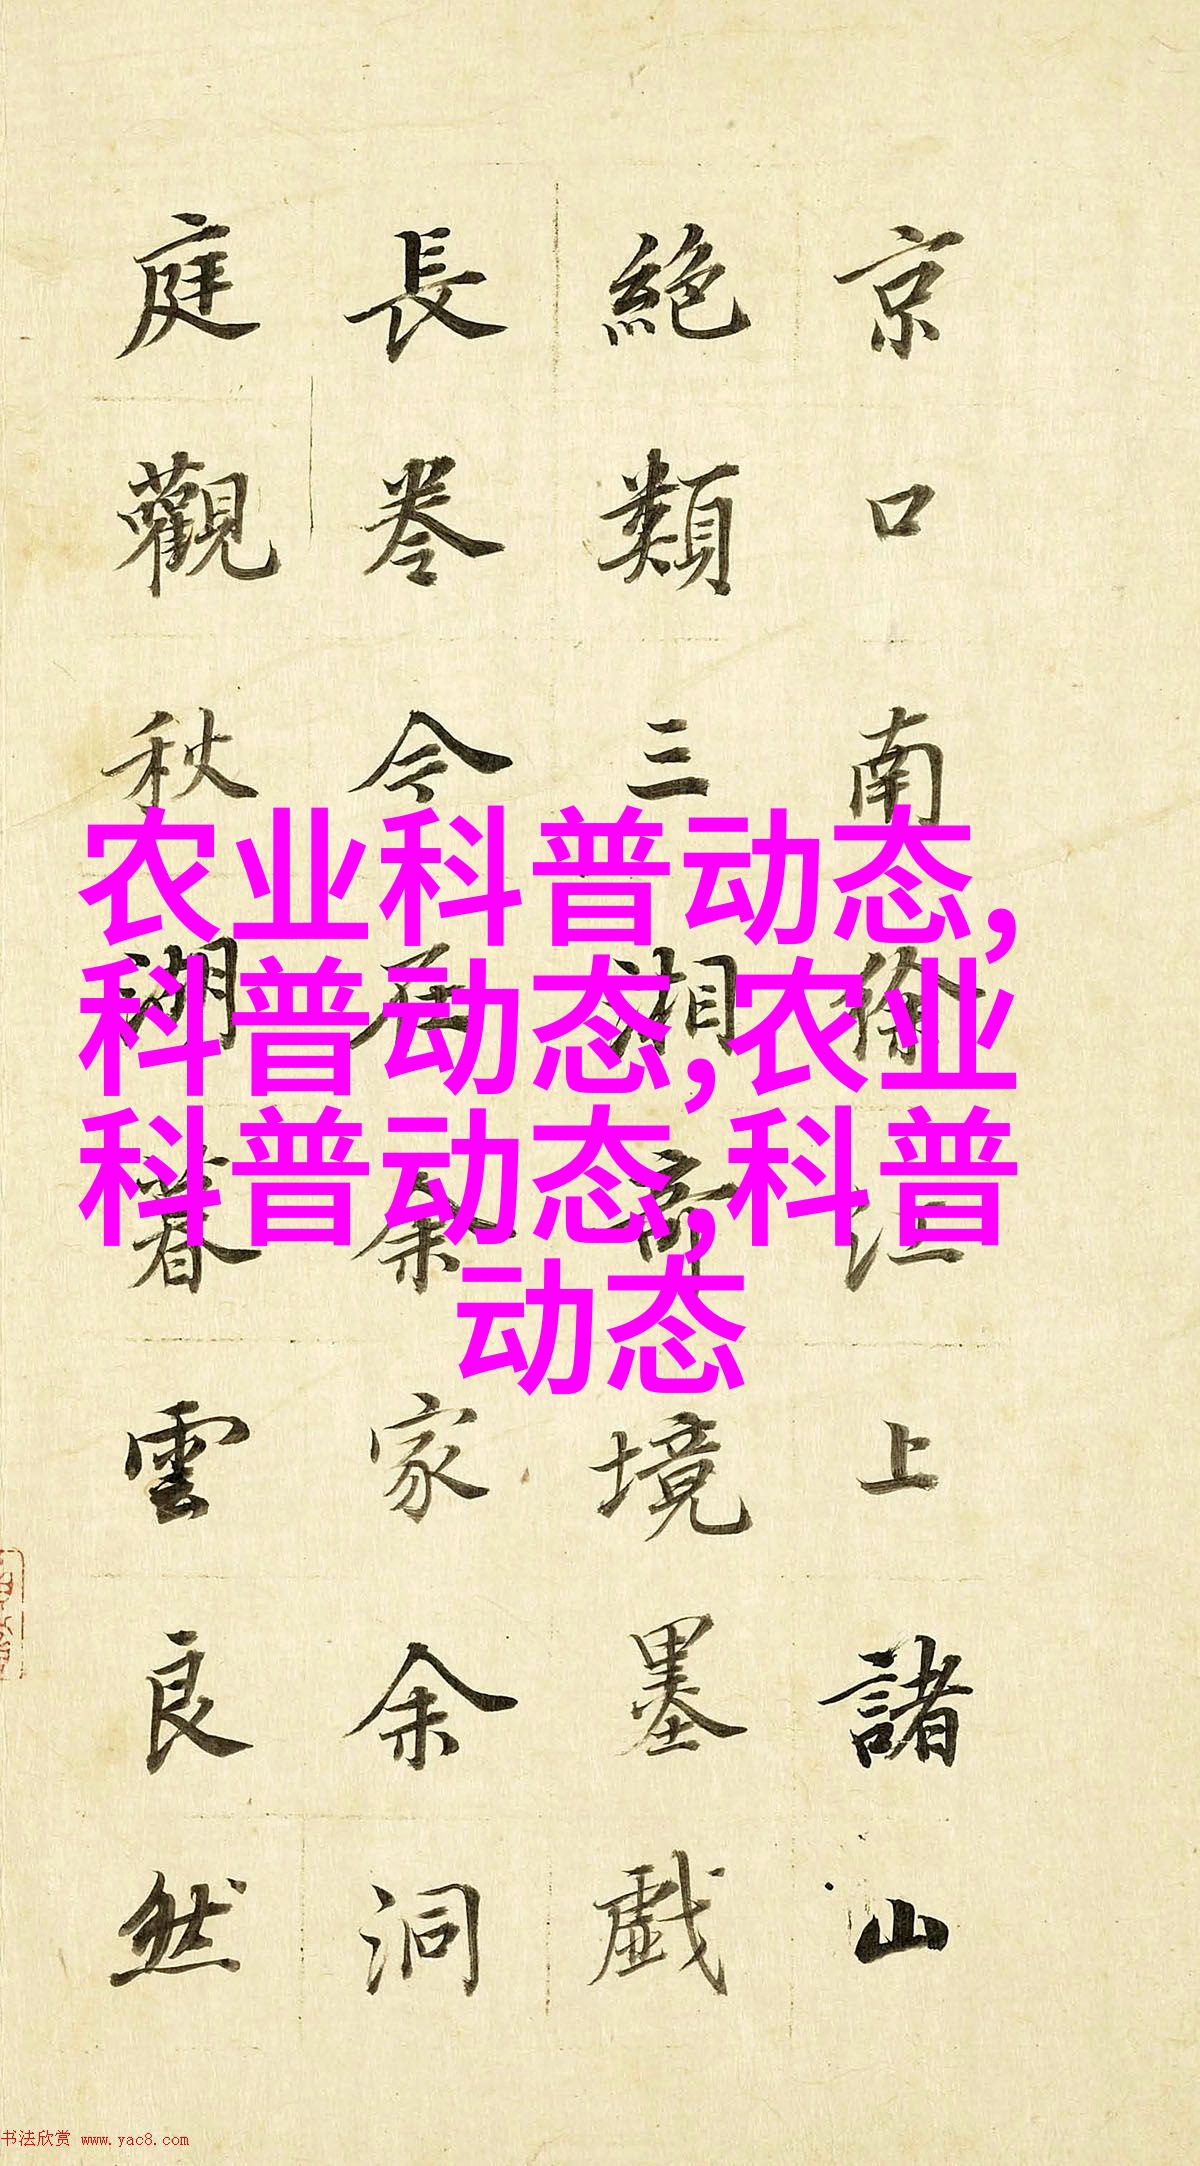 京口南徐江上諸山
絶類三湘奇境墨戲
長卷今在余家余洞
庭觀秋湖暮雲良然
农业科普动态,
科普动态,农业
科普动态,科普
动态
书法欣赏 www.yac8.com